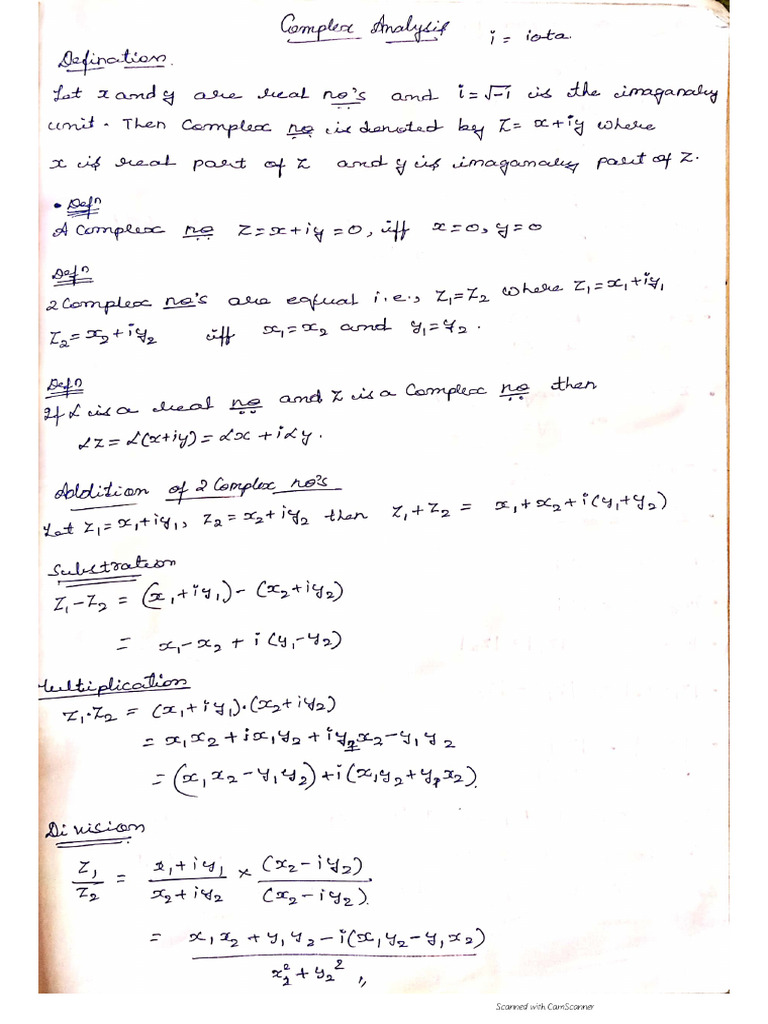 Complex Analysis
i = iota.
Defination.
Let x and y are real no's and i=√-1 is the imaganary
unit. Then Complex no is denoted by Z= x+iy where
x is real part of z and y is imaganary part of z.
• Defn
A Complex no Z=x+iy=0, iff x=0, y=0
Defn
2 Complex no's are equal i.e., Z₁=Z₂ where Z₁=x₁+iy₁
Z₂=x₂+iy₂ iff x₁=x₂ and y₁=y₂.
Defn
If α is a real no and z is a Complex no then
αz=α(x+iy)=αx+iαy.
Addition of 2 Complex no's
Let z₁=x₁+iy₁, z₂=x₂+iy₂ then z₁+z₂ = x₁+x₂+i(y₁+y₂)
Substration
Z₁-Z₂ = (x₁+iy₁)-(x₂+iy₂)
= x₁-x₂+i(y₁-y₂)
Multiplication
Z₁·Z₂ = (x₁+iy₁)·(x₂+iy₂)
= x₁x₂+ix₁y₂+iy₂x₂-y₁y₂
= (x₁x₂-y₁y₂)+i(x₁y₂+y₁x₂).
Division
Z₁/Z₂ = x₁+iy₁/x₂+iy₂ × (x₂-iy₂)/(x₂-iy₂).
= x₁x₂+y₁y₂-i(x₁y₂-y₁x₂)/x₂²+y₂² ,,
Scanned with CamScanner